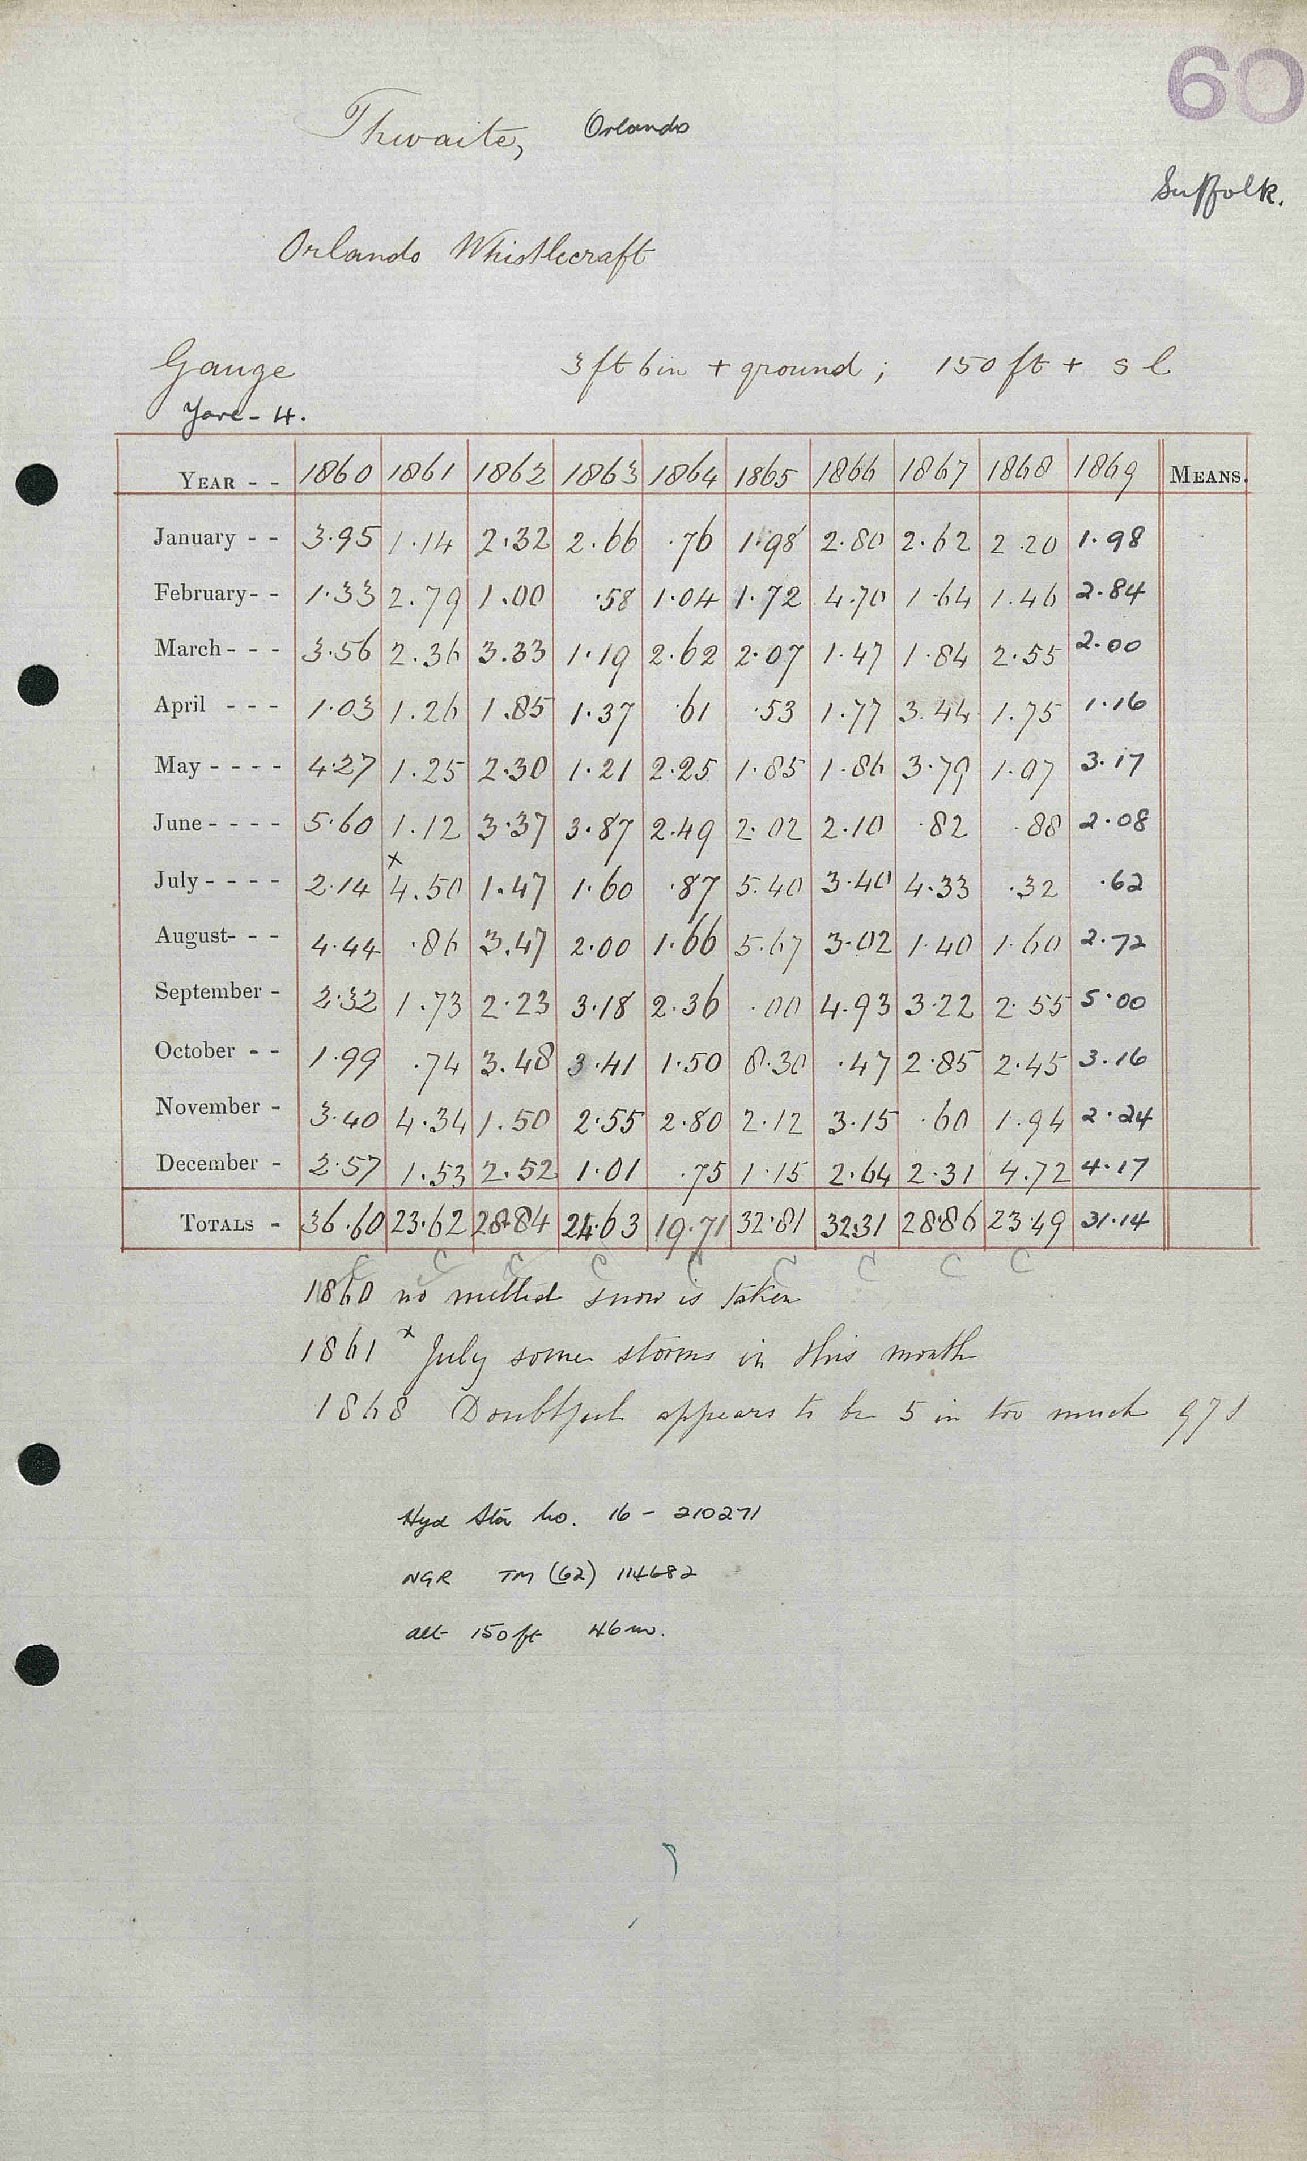 60
Thwaite, Orlando
Suffolk.
Orlando Whistlecraft
Gauge 3 ft 6 in + ground ; 150 ft + s l
Yare - 4.
YEAR - - 1860 1861 1862 1863 1864 1865 1866 1867 1868 1869 MEANS.
January - - 3.95 1.14 2.32 2.66 .76 1.98 2.80 2.62 2.20 1.98
February- - 1.33 2.79 1.00 .58 1.04 1.72 4.70 1.64 1.46 2.84
March - - - 3.56 2.36 3.33 1.19 2.62 2.07 1.47 1.84 2.55 2.00
April - - - 1.03 1.26 1.85 1.37 .61 .53 1.77 3.44 1.75 1.16
May - - - - 4.27 1.25 2.30 1.21 2.25 1.85 1.86 3.79 1.07 3.17
June - - - - 5.60 1.12 3.37 3.87 2.49 2.02 2.10 .82 .88 2.08
July - - - - 2.14 x4.50 1.47 1.60 .87 5.40 3.40 4.33 .32 .62
August- - - 4.44 .86 3.47 2.00 1.66 5.67 3.02 1.40 1.60 2.72
September - 2.32 1.73 2.23 3.18 2.36 .00 4.93 3.22 2.55 5.00
October - - 1.99 .74 3.48 3.41 1.50 8.30 .47 2.85 2.45 3.16
November - 3.40 4.34 1.50 2.55 2.80 2.12 3.15 .60 1.94 2.24
December - 2.57 1.53 2.52 1.01 .75 1.15 2.64 2.31 4.72 4.17
TOTALS - 36.60 23.62 28.84 24.63 19.71 32.81 32.31 28.86 23.49 31.14
C C C C C C C C C
1860 no melted snow is taken
1861 x July some storms in this month
1868 Doubtful appears to be 5 in too much
Hyd Sta No. 16 - 210271
NGR TM (62) 114682
alt 150 ft 46 m.